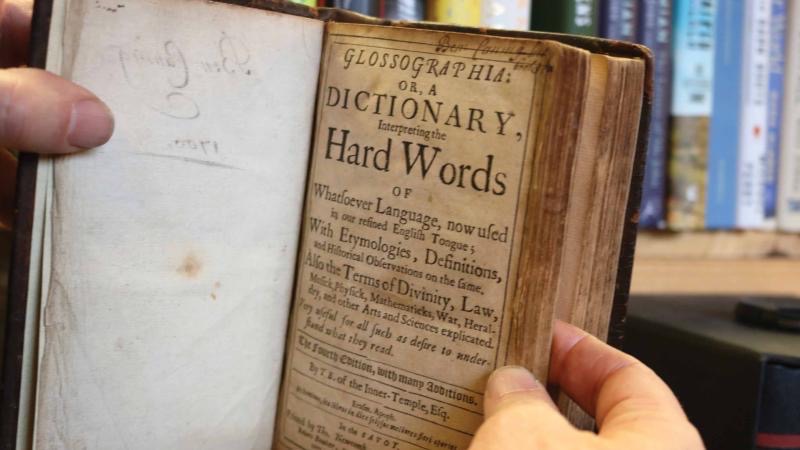 Ben Cuning
1700
GLOSSOGRAPHIA:
OR, A
DICTIONARY,
Interpreting the
Hard Words
OF
Whatſoever Language, now uſed
in our refined Engliſh Tongue;
With Etymologies, Definitions,
and Hiſtorical Obſervations on the ſame.
Alſo the Terms of Divinity, Law,
Muſick, Phyſick, Mathematicks, War, Heral-
dry, and other Arts and Sciences explicated.
Very uſeful for all ſuch as deſire to under-
ſtand what they read.
The Fourth Edition, with many Additions.
By T. B. of the Inner-Temple, Eſq.
In the SAVOY,
Printed by Tho. Newcomb